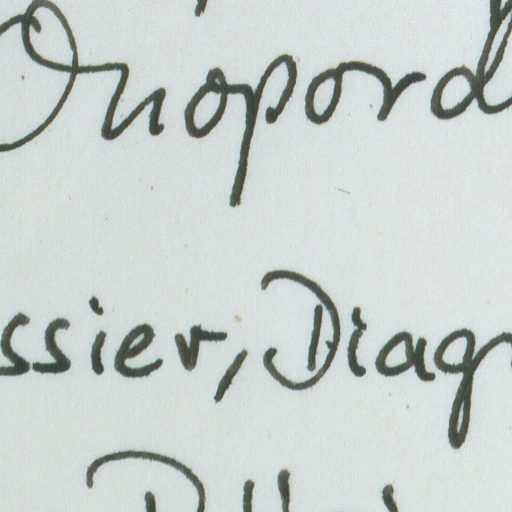 Onopord
ssier, Diag